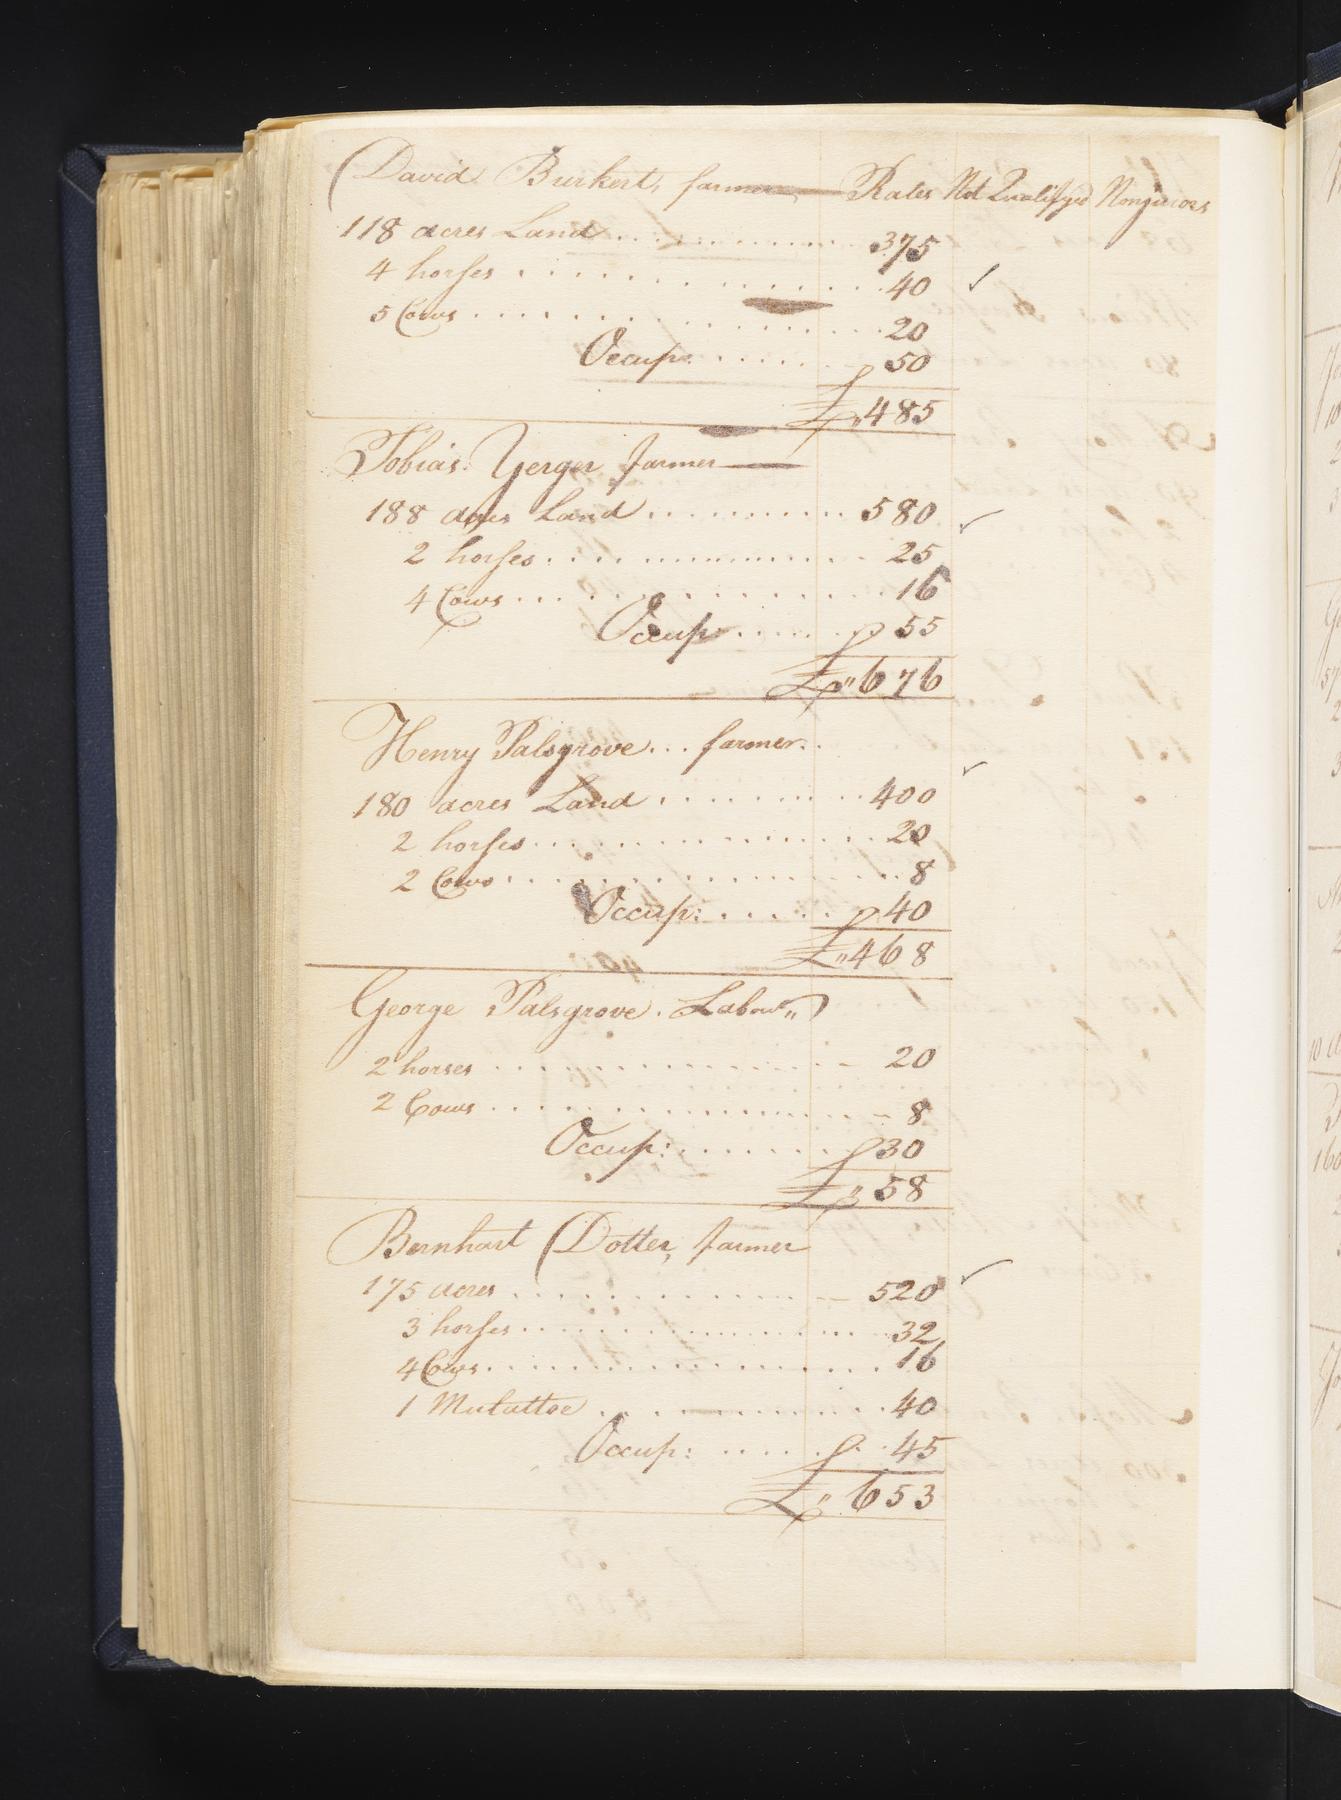 David Burkert, farmer Rates Not Qualifyed Nonjurors
118 acres Land 375
4 horses 40 ✓
5 Cows 20
Occup: 50
£„485
Tobias Yerger farmer
188 acres Land 580 ✓
2 horses 25
4 Cows 16
Occup: 55
£„676
Henry Palsgrove... farmer
180 acres Land 400 ✓
2 horses 20
2 Cows 8
Occup: 40
£„468
George Palsgrove. Labour„
2 horses 20
2 Cows 8
Occup: 30
£„58
Bernhart Dotter, farmer
175 acres 520 ✓
3 horses 32
4 Cows 16
1 Mulattoe 40
Occup: 45
£„653